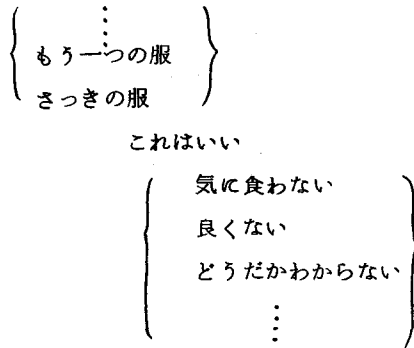 ⋮
もう一つの服
さっきの服
これはいい
気に食わない
良くない
どうだかわからない
⋮